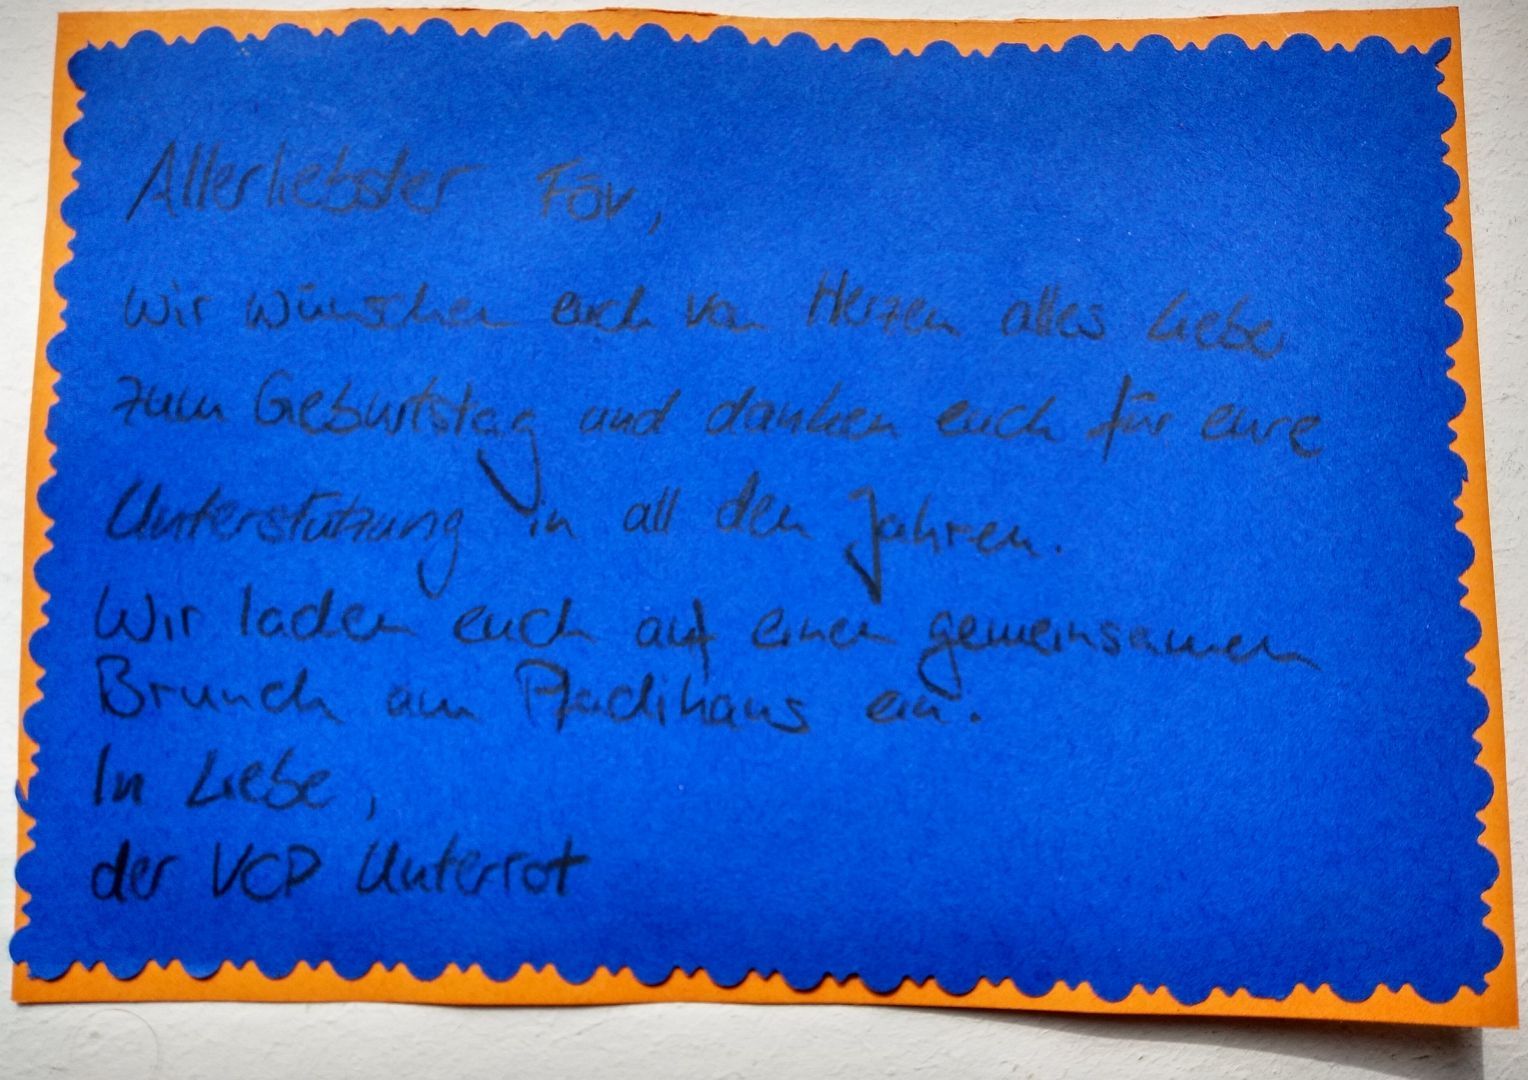 Allerliebster Föv,
Wir wünschen euch von Herzen alles Liebe
zum Geburtstag und danken euch für eure
Unterstützung in all den Jahren.
Wir laden euch auf einen gemeinsamen
Brunch am Pfadihaus ein.
In Liebe,
der VCP Unterrot